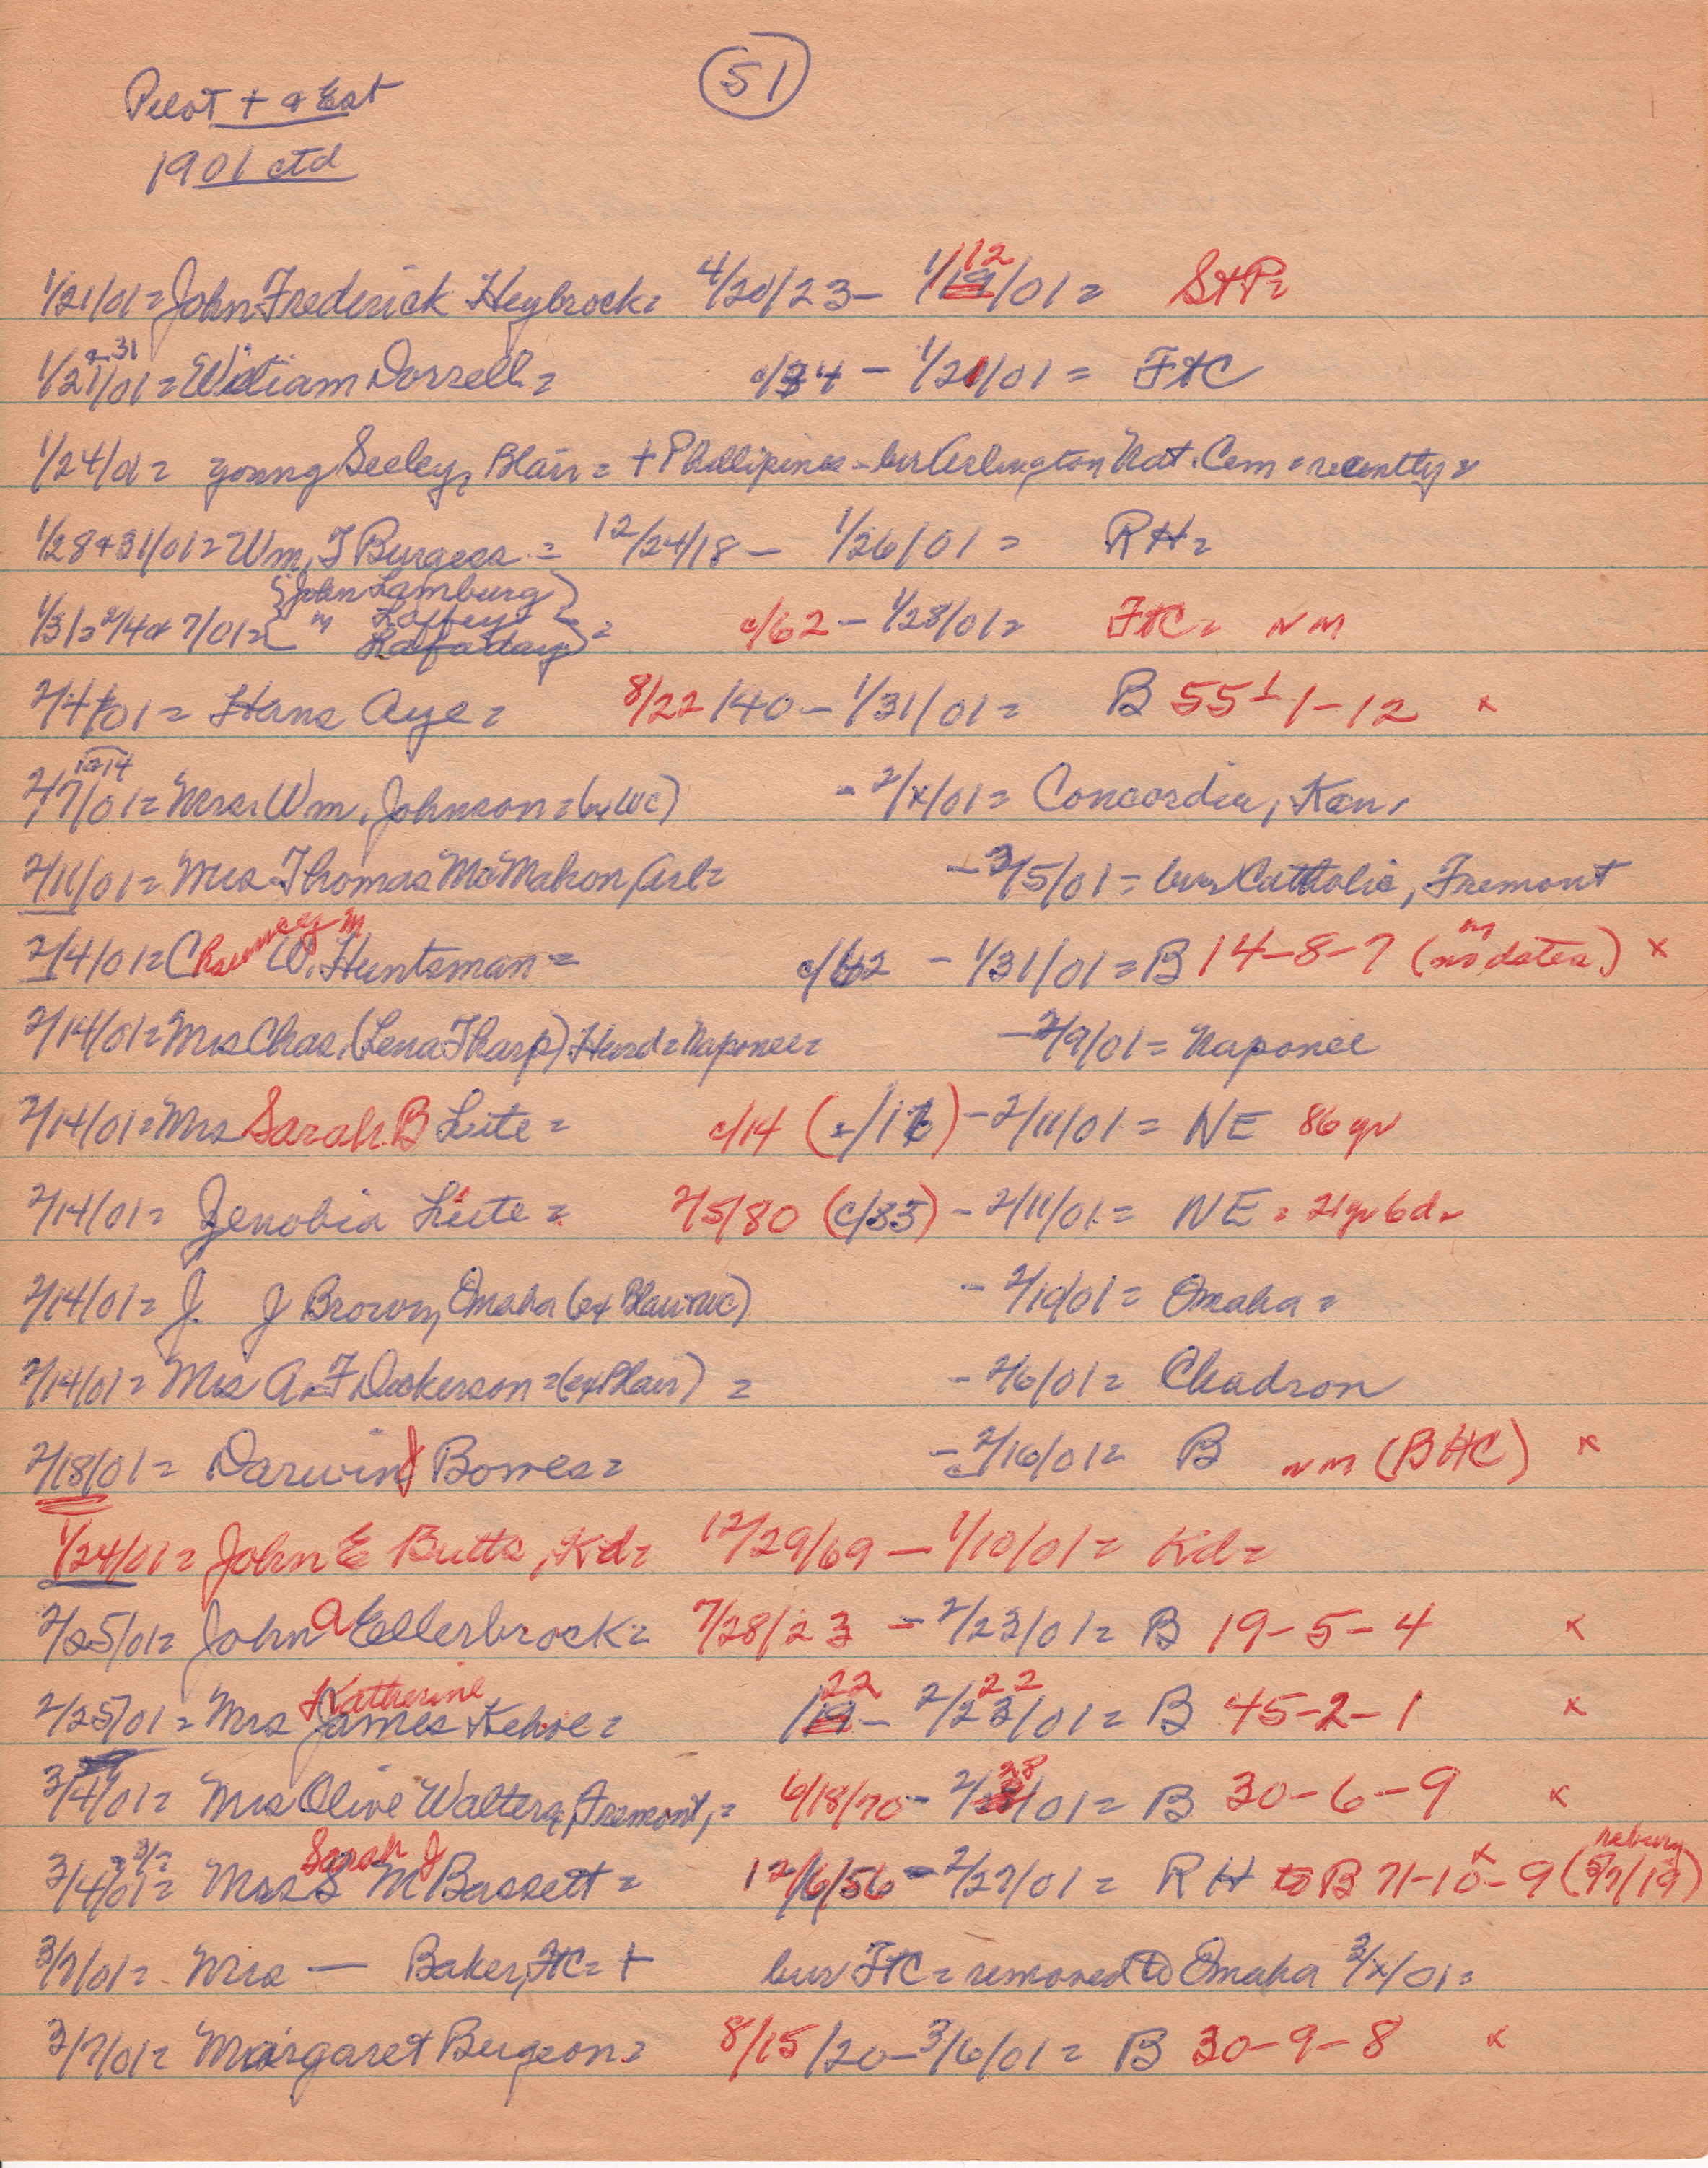 51
Pilot + & Est
1901 ctd
1/21/01 = John Frederick Heybrock = 4/20/23 - 1/19/01 = StP =
12
1/21/01 = William Dorrell = c/34 - 1/21/01 = FtC
& 31
1/24/01 = young Seeley, Blair = + Phillipines - bur Arlington Nat. Cem = recently =
1/28+31/01 = Wm. T Burgess = 12/24/18 - 1/26/01 = RH =
{John Lamburg}
1/31 = 2/4 & 7/01 = { " Laffey } = c/62 - 1/28/01 = FtC = NM
2/4/01 = Hans Aye = 8/22/40 - 1/31/01 = B 55 1/2 - 1 - 12 x
12 14
2/7/01 = Mrs. Wm. Johnson = (ex WC) - 2/x/01 = Concordia, Kan,
2/11/01 = Mrs Thomas McMahon, Arl = - 2/5/01 = bur Catholic, Fremont
2/4/01 = Chauncey M W. Huntsman = c/62 - 1/31/01 = B 14-8-7 (m no dates) x
2/14/01 = Mrs Chas. (Lena Tharp) Hurd = Naponee = - 2/9/01 = Naponee
2/14/01 = Mrs Sarah B Lute = c/14 (c/16) - 2/11/01 = NE 86 yr
2/14/01 = Zenobia Lute = 2/5/80 (c/85) - 2/11/01 = NE = 21 yr 6 d =
2/14/01 = J. J Brown, Omaha (ex Blair + WC) - 2/10/01 = Omaha =
2/14/01 = Mrs A. F Dickerson = (ex Blair) = - 2/6/01 = Chadron
2/18/01 = Darwin J Bowes = - c 2/16/01 = B NM (BHC) x
1/24/01 = John E Butts, Kd = 12/29/69 - 1/10/01 = Kd =
2/25/01 = John A Ellerbrock = 7/28/23 - 2/23/01 = B 19-5-4 x
Katherine 22 22
2/25/01 = Mrs James Kehoe = /19 - 2/23/01 = B 45-2-1 x
28
3/4/01 = Mrs Olive Walters, Fremont, = 6/18/70 - 2/28/01 = B 30-6-9 x
& 3/7 Sarah J x rebury
3/4/01 = Mrs S M Bassett = 12/6/56 - 2/27/01 = RH to B 71-10-9 (5/7/19)
3/7/01 = Mrs — Baker, FtC = + bur FtC = removed to Omaha 3/x/01 =
3/7/01 = Margaret Burgeon = 8/15/20 - 3/6/01 = B 30-9-8 x